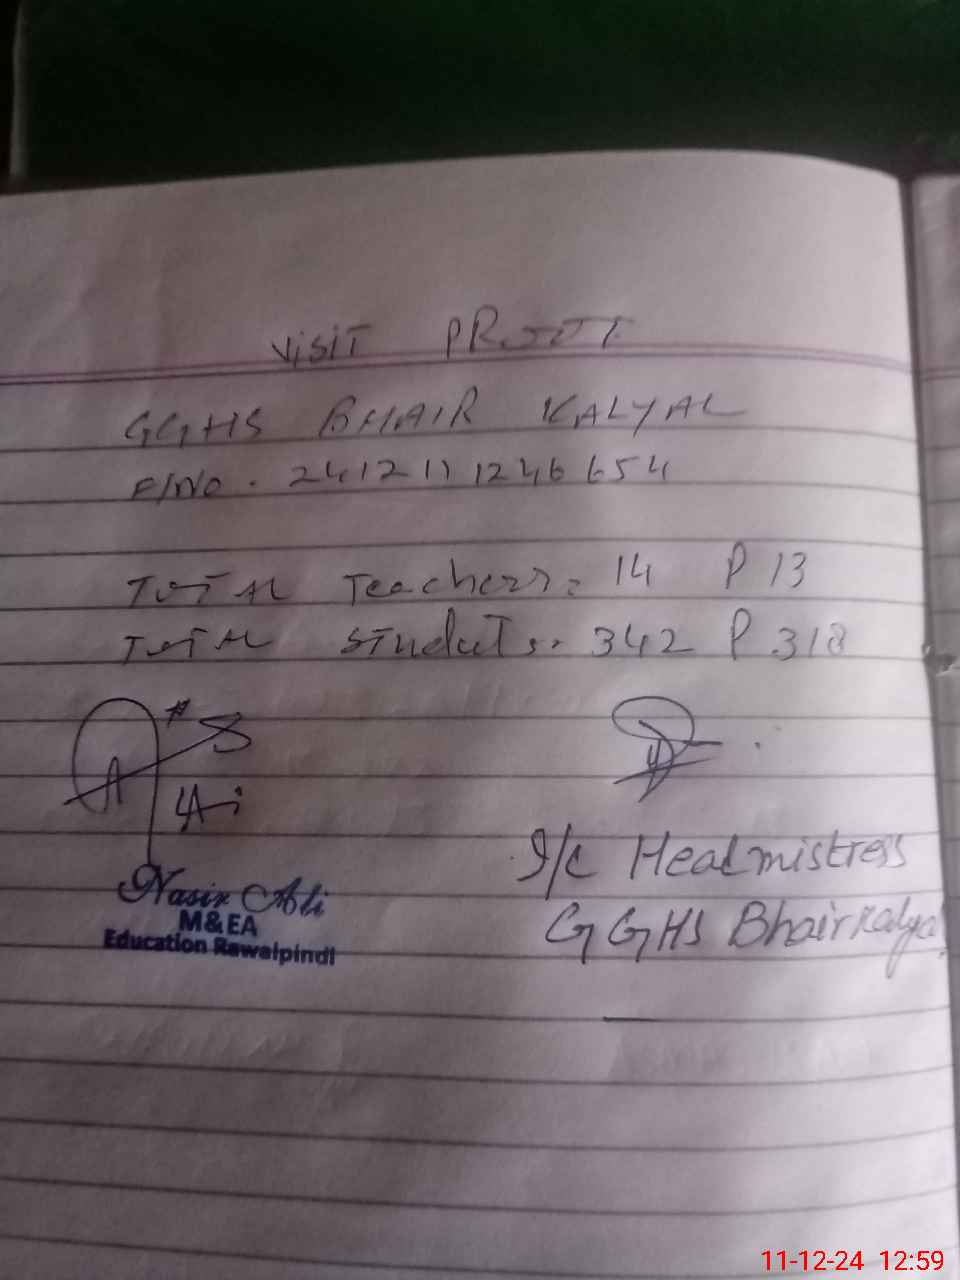 VISIT PROOF
GGHS BHAIR KALYAL
F/No. 2412111246654
TOTAL Teachers: 14 P 13
TOTAL Students: 342 P 318
Ali
Nasir Ali
M&EA
Education Rawalpindi
I/C Headmistress
GGHS Bhair Kalyal
11-12-24 12:59